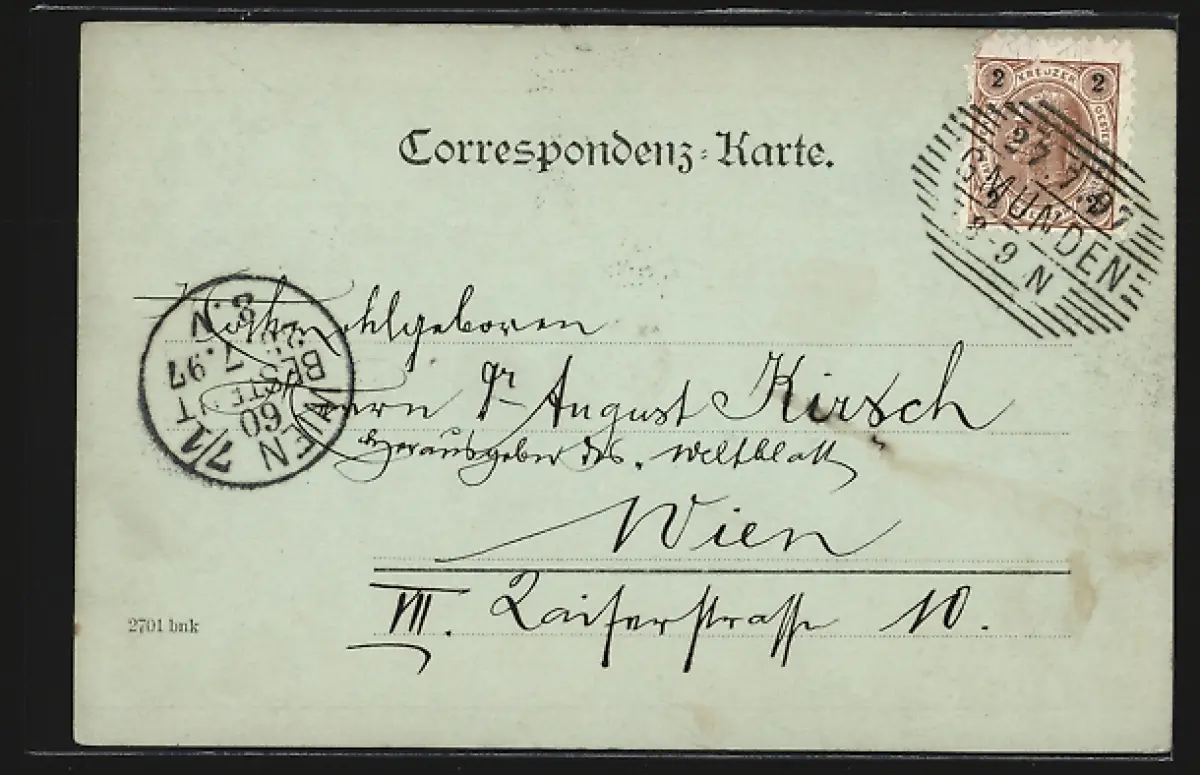 Correspondenz-Karte.
2 KREUZER 2
27.7.97
GMUNDEN
8-9 N
2 2
Hochwohlgeboren
Herrn Dr August Kirsch
Herausgeber des. Weltblatt
Wien
VII. Kaiserstrasse 10.
WIEN 7/1
60
BESTELLT
7.97
3.N
2701 bnk